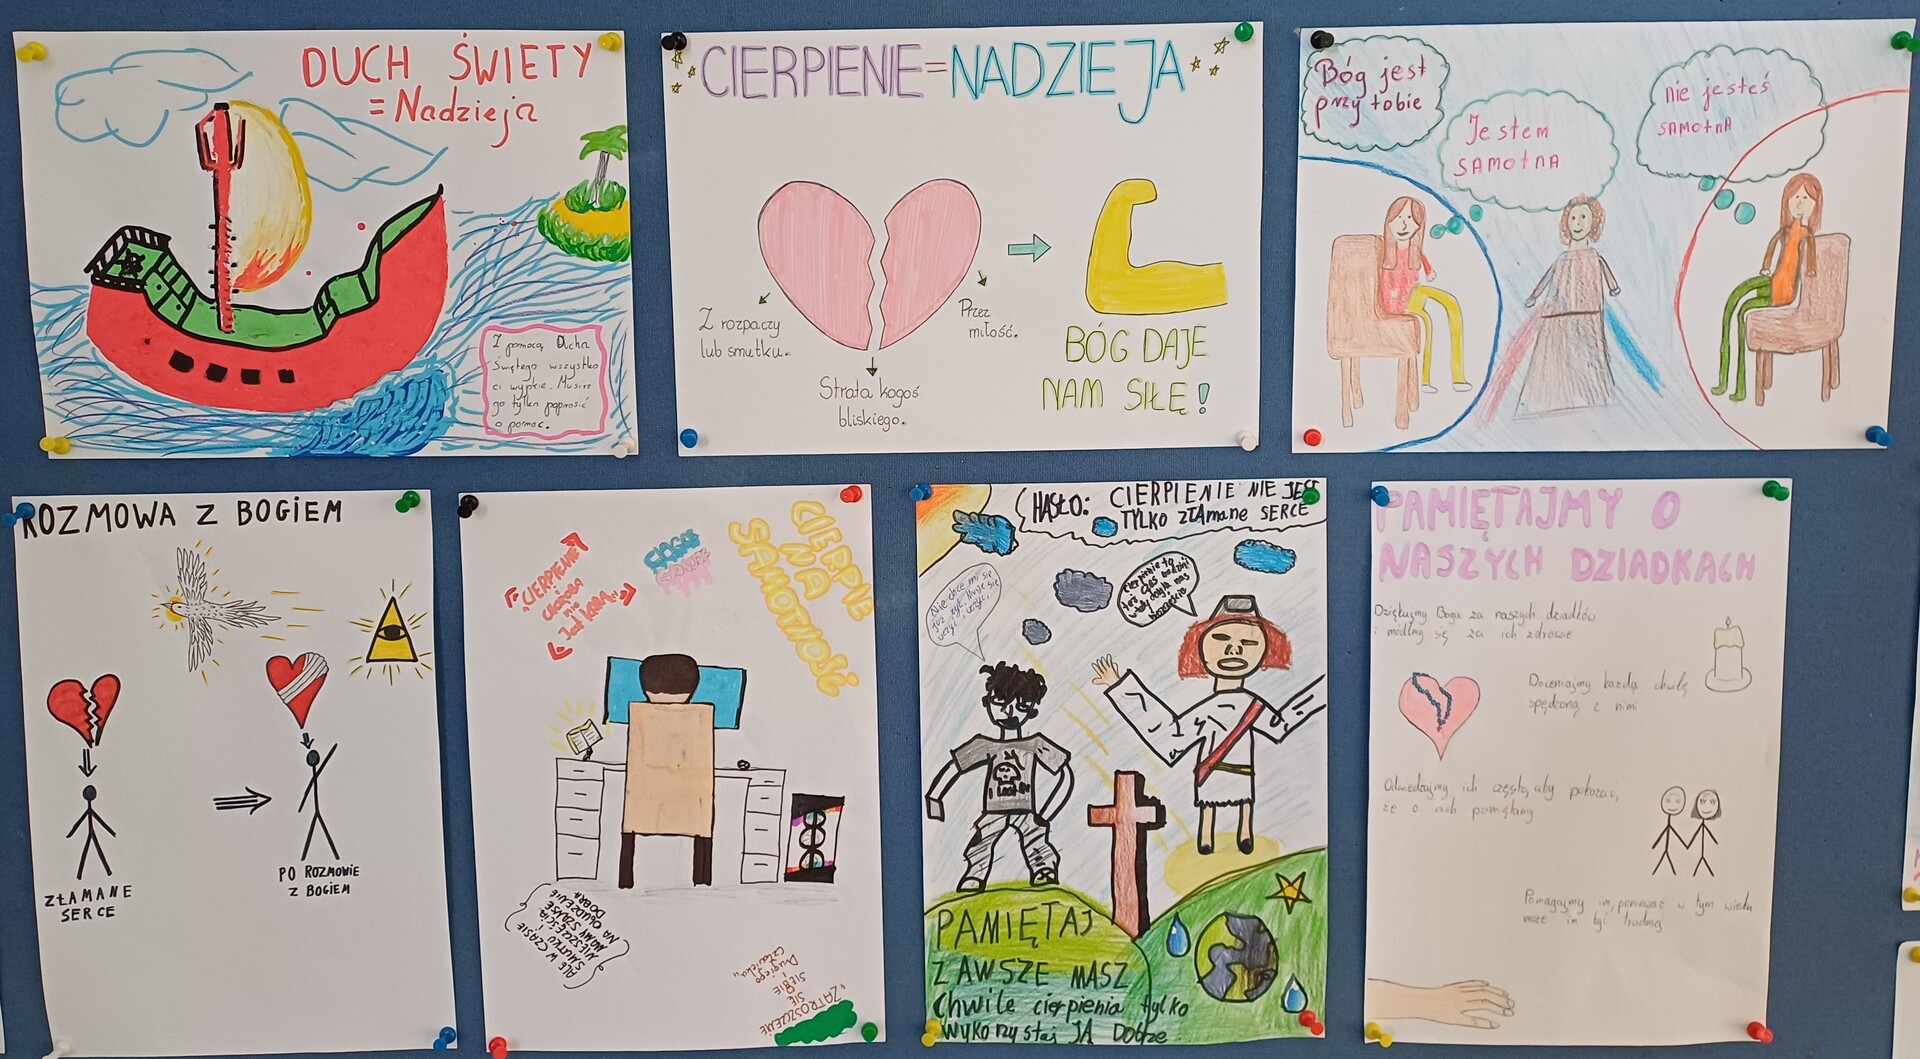 DUCH ŚWIETY
= Nadzieja
Z pomocą Ducha
Świętego wszystko
ci wyjdzie. Musisz
go tylko poprosić
o pomoc.
CIERPIENIE=NADZIEJA
Z rozpaczy
lub smutku.
Strata kogoś
bliskiego.
Przez
miłość.
BÓG DAJE
NAM SIŁĘ!
Bóg jest
przy tobie
Jestem
SAMOtNA
nie jesteś
SAMOtnA
ROZMOWA Z BOGIEM
ZŁAMANE
SERCE
PO ROZMOWIE
Z BOGIEM
"CIERPIENIE
CHOROBA
nie
Jest KARĄ"
CIĄGŁE
CIERPIENIE
NA
SAMOTNOŚĆ
ALE W CZASIE
SMUTKU I
NIESZCZĘŚCIA
MAMY SZANSE
NA OBUDZENIE
DOBRA
"ZATROSZCZENIE
SIĘ
SIEBIE
i
Drugiego
człowieka"
HASŁO: CIERPIENIE NIE JEST
TYLKO ZŁAMANE SERCE
Nie chce mi się
już żyć.
uczyć i uczyć.
cierpienie to
też czas nadziei
PAMIĘTAJ
ZAWSZE MASZ
Chwile cierpienia tylko
wykorzystaj JĄ DObrze
PAMIĘTAJMY O
NASZYCH DZIADKACH
Dziękujmy Bogu za naszych dziadków
i módlmy się za ich zdrowie
Doceniajmy każdą chwilę
spędzoną z nimi
Odwiedzajmy ich często, aby pokazać,
że o nich pamiętamy
Pomagajmy im, ponieważ w tym wieku
może im być trudniej